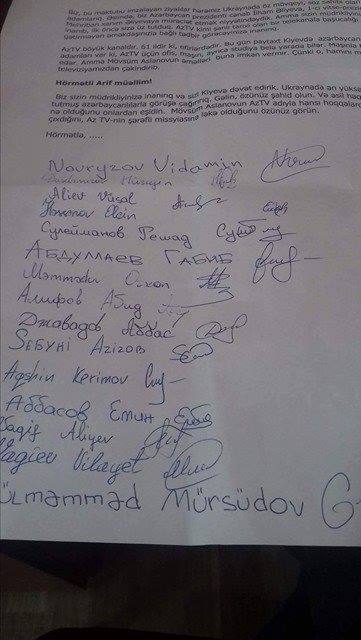 Biz, bu məktubu imzalayan ziyalılar həmimiz Ukraynada öz mövqeyi, söz sahibi olan
adamlarıq. Günündə, biz Azərbaycan prezidenti cənab İlham Əliyevə, 1-ci vitse-prezident
Mehriban xanım Əliyevaya müraciət etmək niyyətindəydik. Amma sizin müdrikliyinizə
inanıb, ilk öncə sizə üz tuturuq. AzTV kimi şanlı tarixi olan bir telekanala başucalığı
gətirməyən əməkdaşınızla bağlı tədbir görəcəyinizə inanırıq.
AzTV böyük kanaldır. 61 ildir ki, efirdədədir. Bu gün paytaxt Kiyevdə azərbaycanlı iş
adamları var ki, AzTV üçün ofis, maşın, hətta studiya belə yarada bilər. Maşınla təmin
edər. Amma Mövsüm Aslanovun əməlləri buna imkan vermir. Çünki o, hamını məhz
televiziyamızdan çəkindirib.
Hörmətli Arif müəllim!
Biz sizin müdrikliyinizə inanırıq və sizi Kiyevə dəvət edirik. Ukraynada ən yüksək
tutmuş azərbaycanlılarla görüşə çağırırıq. Gəlin, özünüz şahid olun. Və əsil həqiqətin
nə olduğunu onlardan eşidin. Mövsüm Aslanovun AzTV adıyla hansı hoqqalardan
çıxdığını, Az TV-nin şərəfli missiyasına ləkə olduğunu özünüz görün.
Hörmətlə, .....
Novryzov Vidamin
Hüseyin
Aliev Vasal
Hasanov Elcin
Сулейманов Решад
Абдуллаев Габиб
Məmmədov Orxan
Алифов Абид
Джавадов Аббас
Sebyhi Azizov
Aqshin Kerimov
Аббасов Емин
Vaqif Aliyev
Nagiev Vilayet
Gülməmməd Mürsüdov